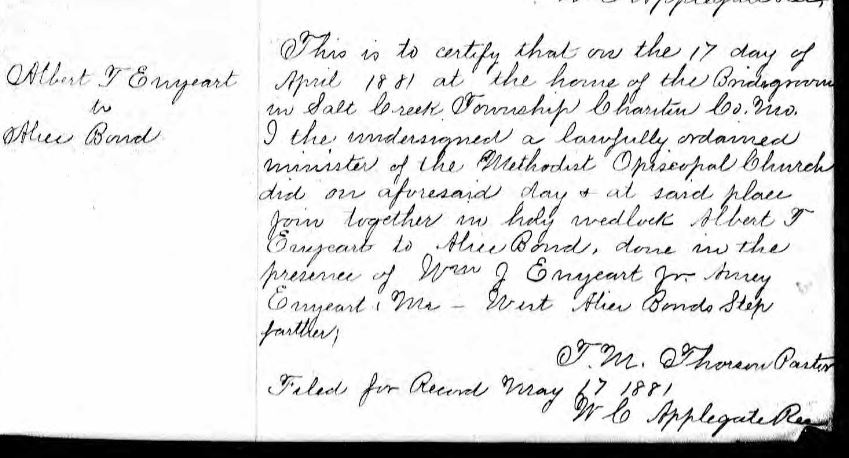 W C Applegate Rec
Albert T Enyeart
to
Alice Bond
This is to certify that on the 17 day of
April 1881 at the home of the Bridegroom
in Salt Creek Township Chariton Co. Mo.
I the undersigned a lawfully ordained
minister of the Methodist Opiscopal Church
did on aforesaid day & at said place
join together in holy wedlock Albert T
Enyeart to Alice Bond, done in the
presence of Wm J Enyeart Jr.
Enyeart, Mr - West Alice Bonds Step
farther,
T. M. Pastor
Filed for Record May 17 1881
W C Applegate Rec